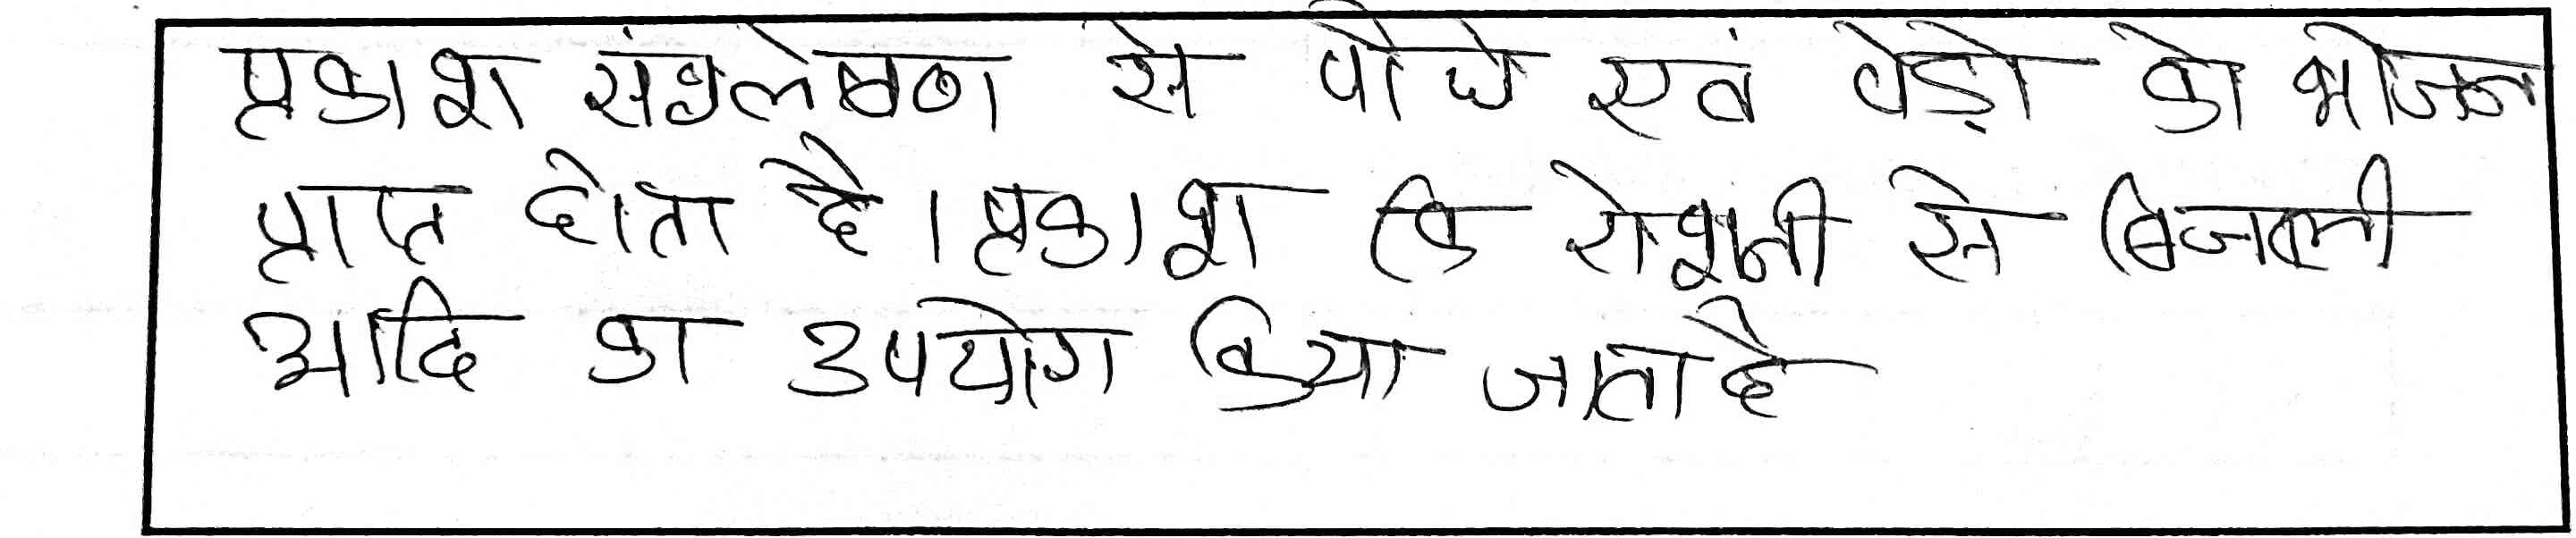 प्रकाश संश्लेषण से पौधे एवं पेड़ो को भोजन
प्राप्त होता है। प्रकाश कि रोशनी से बिजली
आदि का उपयोग किया जाता है